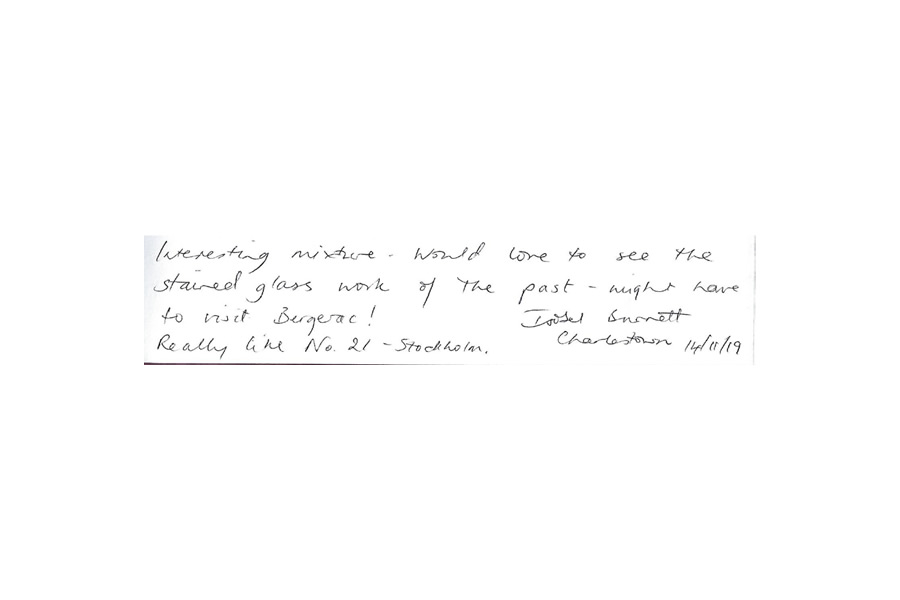 Interesting mixture - Would love to see the
stained glass work of the past - might have
to visit Bergerac!
Isobel
Really like No. 21 - Stockholm.
Charlestown 14/11/19